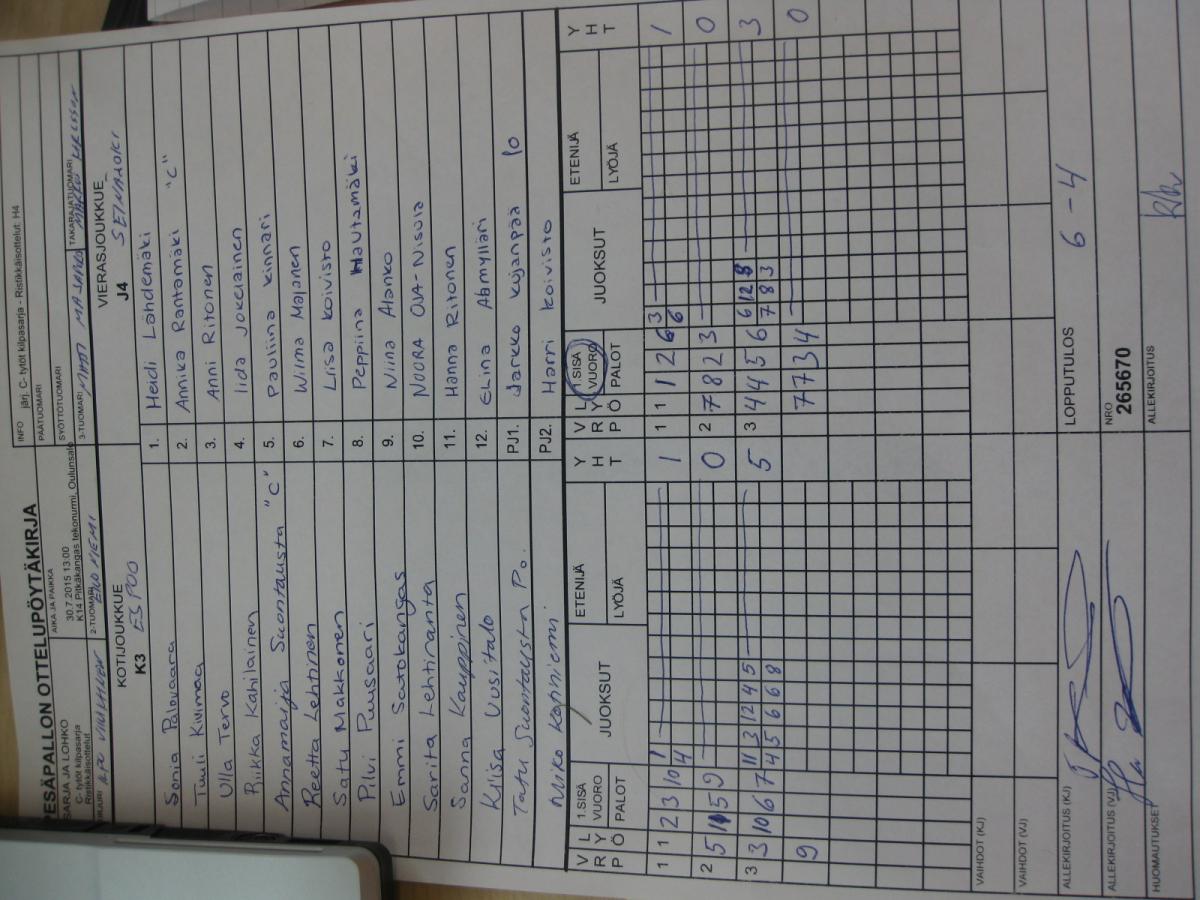 PESÄPALLON OTTELUPÖYTÄKIRJA
INFO järj. C- tytöt kilpasarja - Ristikkäisottelut: H4
SARJA JA LOHKO
C- tytöt kilpasarja
Ristikkäisottelut
AIKA JA PAIKKA
30.7.2015 13:00
K14 Pitkäkangas tekonurmi, Oulunsalo
PÄÄTUOMARI
SYÖTTÖTUOMARI
2-TUOMARI
3-TUOMARI
TAKARAJATUOMARI
KOTIJOUKKUE
K3 ESPOO
VIERASJOUKKUE
J4 SEINÄJOKI
Sonia Palovaara 1. Heidi Lähdemäki
Tuuli Kivimaa 2. Annika Rantamäki "C"
Ulla Tervo 3. Anni Ritonen
Riikka Kähiläinen 4. Iida Jokelainen
Annamaija Suontausta "C" 5. Pauliina Kinnari
Reetta Lehtinen 6. Wilma Majanen
Satu Makkonen 7. Liisa Koivisto
Pilvi Puusaari 8. Peppiina Hautamäki
Emmi Satokangas 9. Niina Alanko
Sarita Lehtiranta 10. NOORA OJA-Nisula
Sanna Kauppinen 11. Hanna Ritonen
Uusitalo 12. Elina
Suontausta P. PJ1. Jarkko Kujanpää 10
Miko PJ2. Harri Koivisto
V R P L Y Ö 1.SISÄ VUORO PALOT JUOKSUT ETENIJÄ LYÖJÄ Y H T V R P L Y Ö 1.SISÄ VUORO PALOT JUOKSUT ETENIJÄ LYÖJÄ Y H T
1 1 2 3 10 1 4 1 1 1 1 2 6 3 6 1
2 5 9 0 2 7 8 2 3 0
3 3 10 6 7 11 3 12 4 5 4 5 6 6 8 5 3 4 4 5 6 6 12 8 7 8 3 3
9 7 7 3 4 0
VAIHDOT (KJ)
VAIHDOT (VJ)
ALLEKIRJOITUS (KJ)
LOPPUTULOS 6 - 4
ALLEKIRJOITUS (VJ)
NRO
265670
HUOMAUTUKSET
ALLEKIRJOITUS